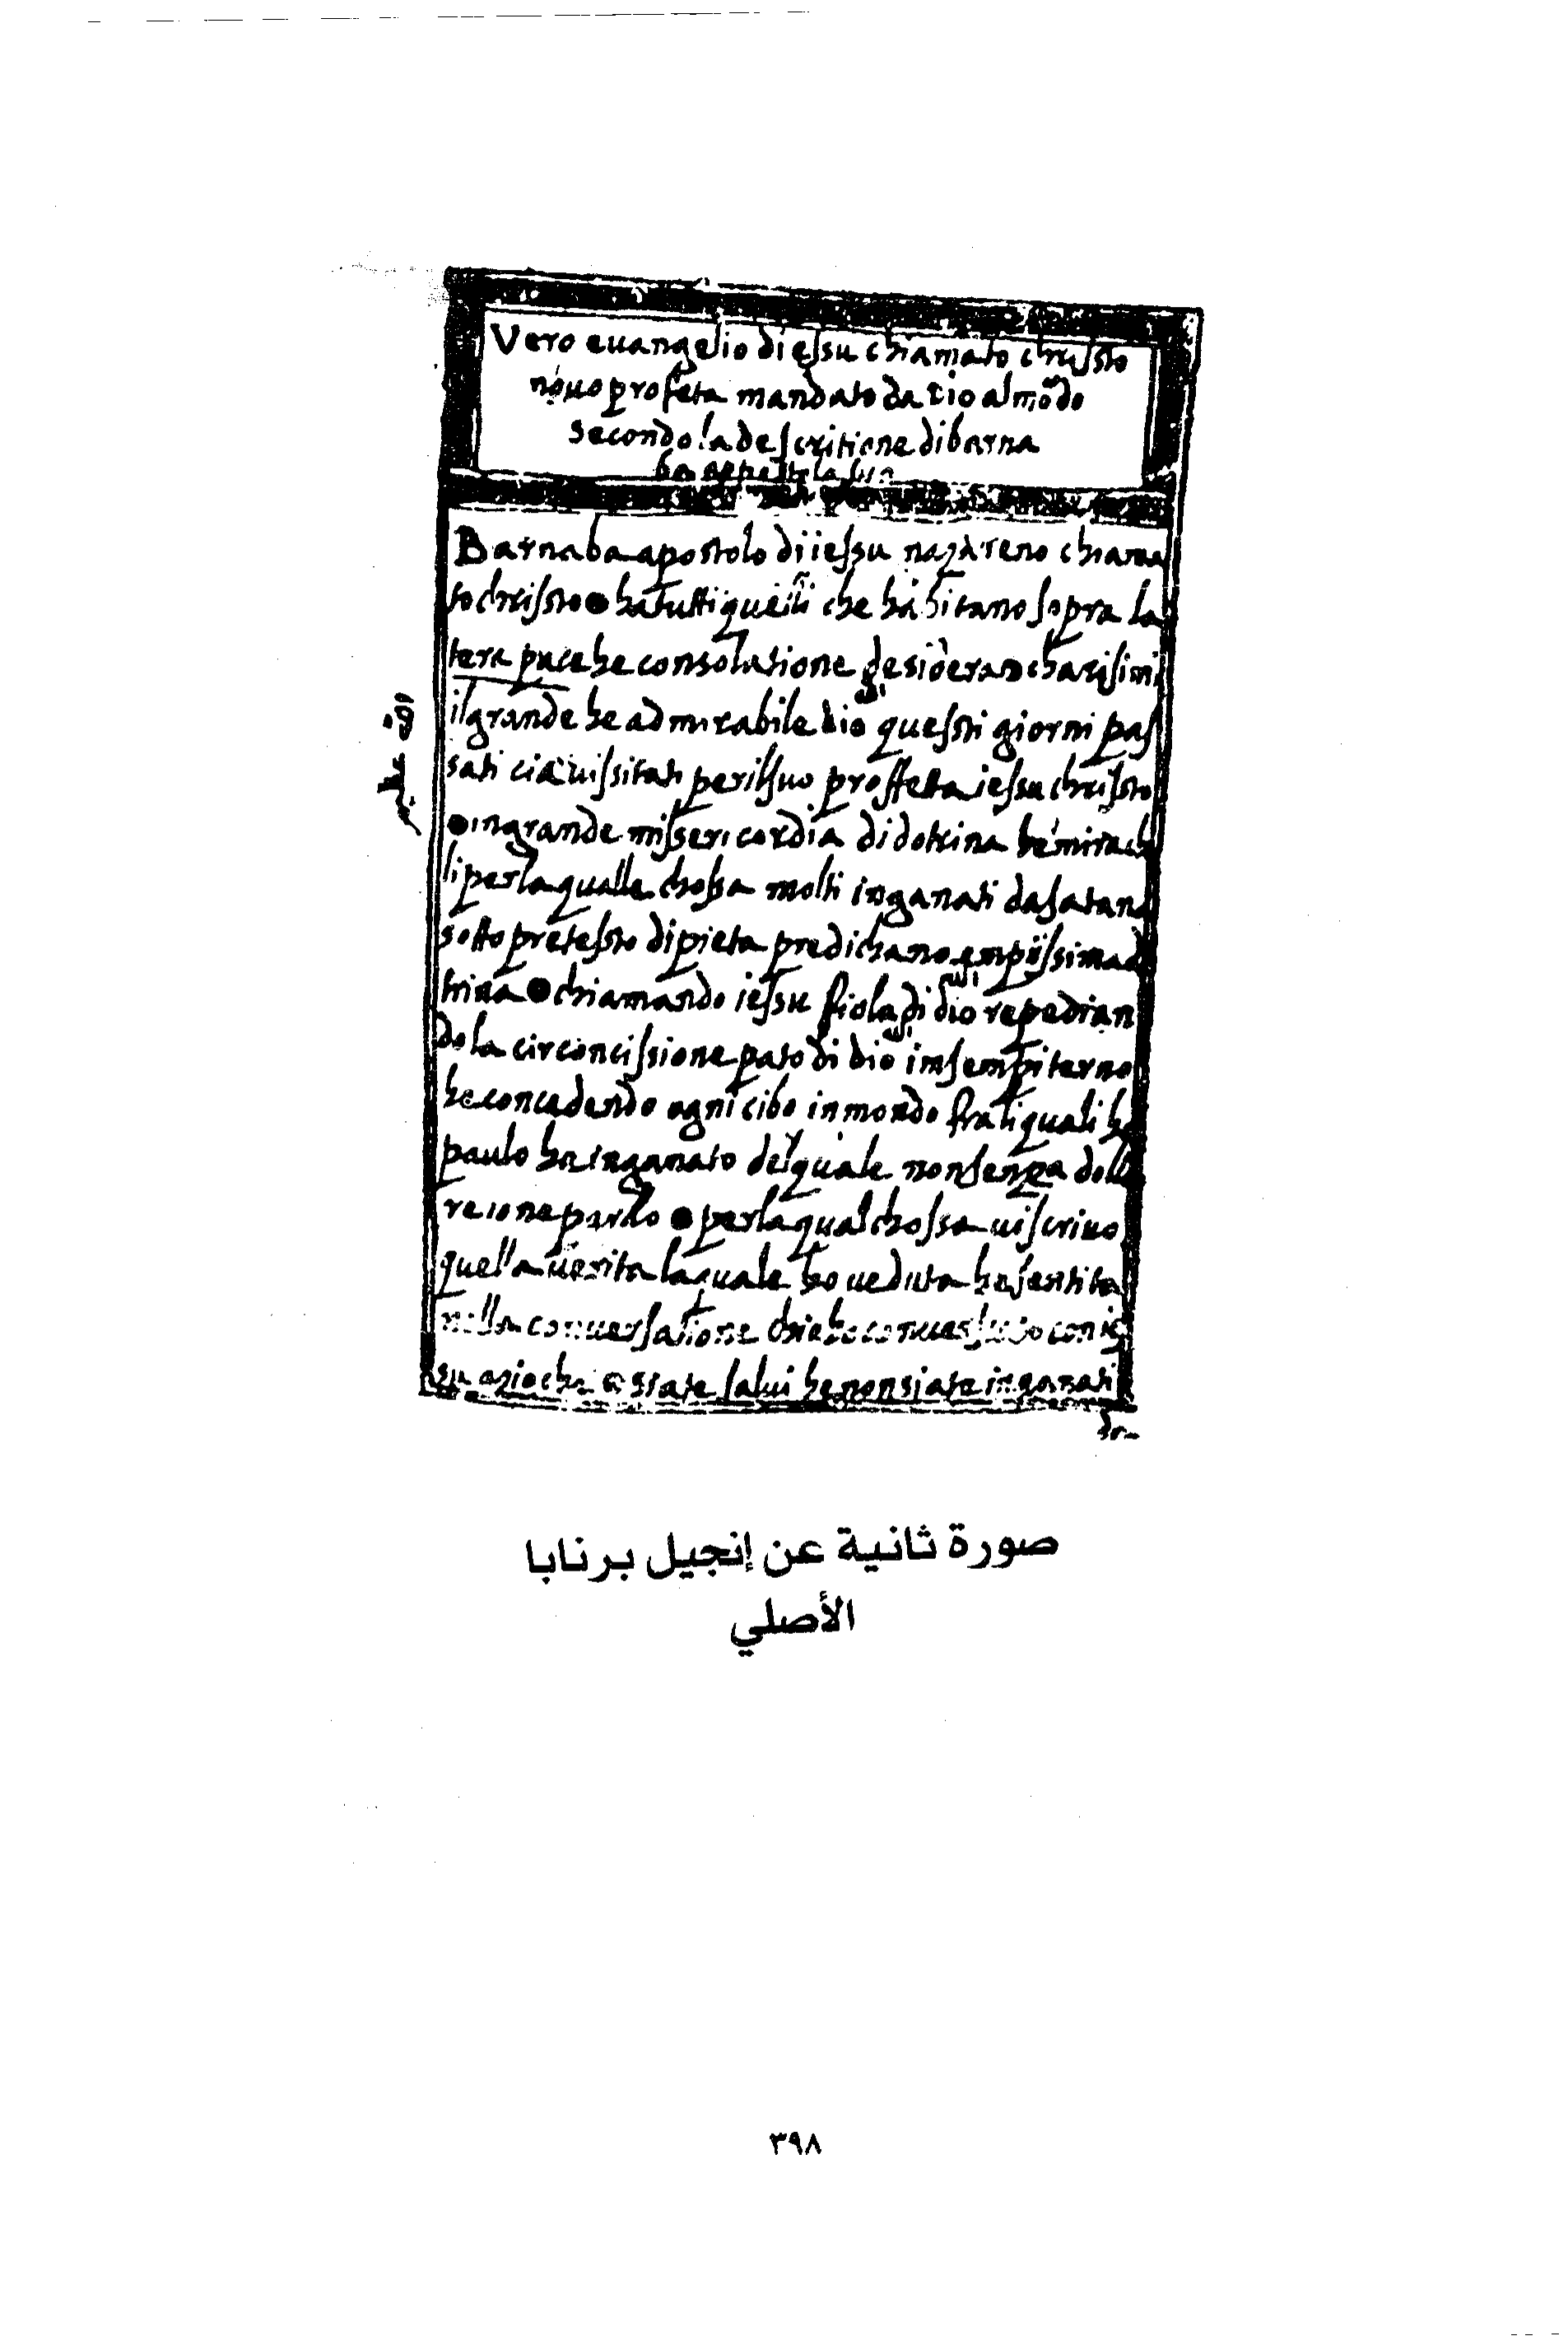 Vero euangelio di essu chiamato chrissto
nouo profeta mandato da dio al mõdo
secondo la descritione di barna
ba appostolo suo
Barnaba apostolo di iessu nazareno chiama
to chrissto ha tutti quelli che habitano sopra la
tera pace he consolatione desidera charissimi
il grande he admirabile dio questi giorni pas
الله
sati ci a uissitati per il suo proffetta iessu chrissto
in grande misericordia di dotrina he mirach
li per la qualle chossa molti inganati da satana
sotto pretessto di pieta predichano empiissima do
trina chiamando iessu fiolo di dio repedian
الله
do la circoncissione pato di dio in sempiterno
الله
he concedendo ogni cibo inmondo fra li quali he
paulo ha inganato del quale non senza dollo
re ione parlo per la qual chossa ui scriuo
quella uerita la quale ho ueduta he sentita
nella conuersatione chio ho conuersato con ie
su azio che siate salui he non siate inganati
da
صورة ثانية عن إنجيل برنابا
الأصلي
٣٩٨